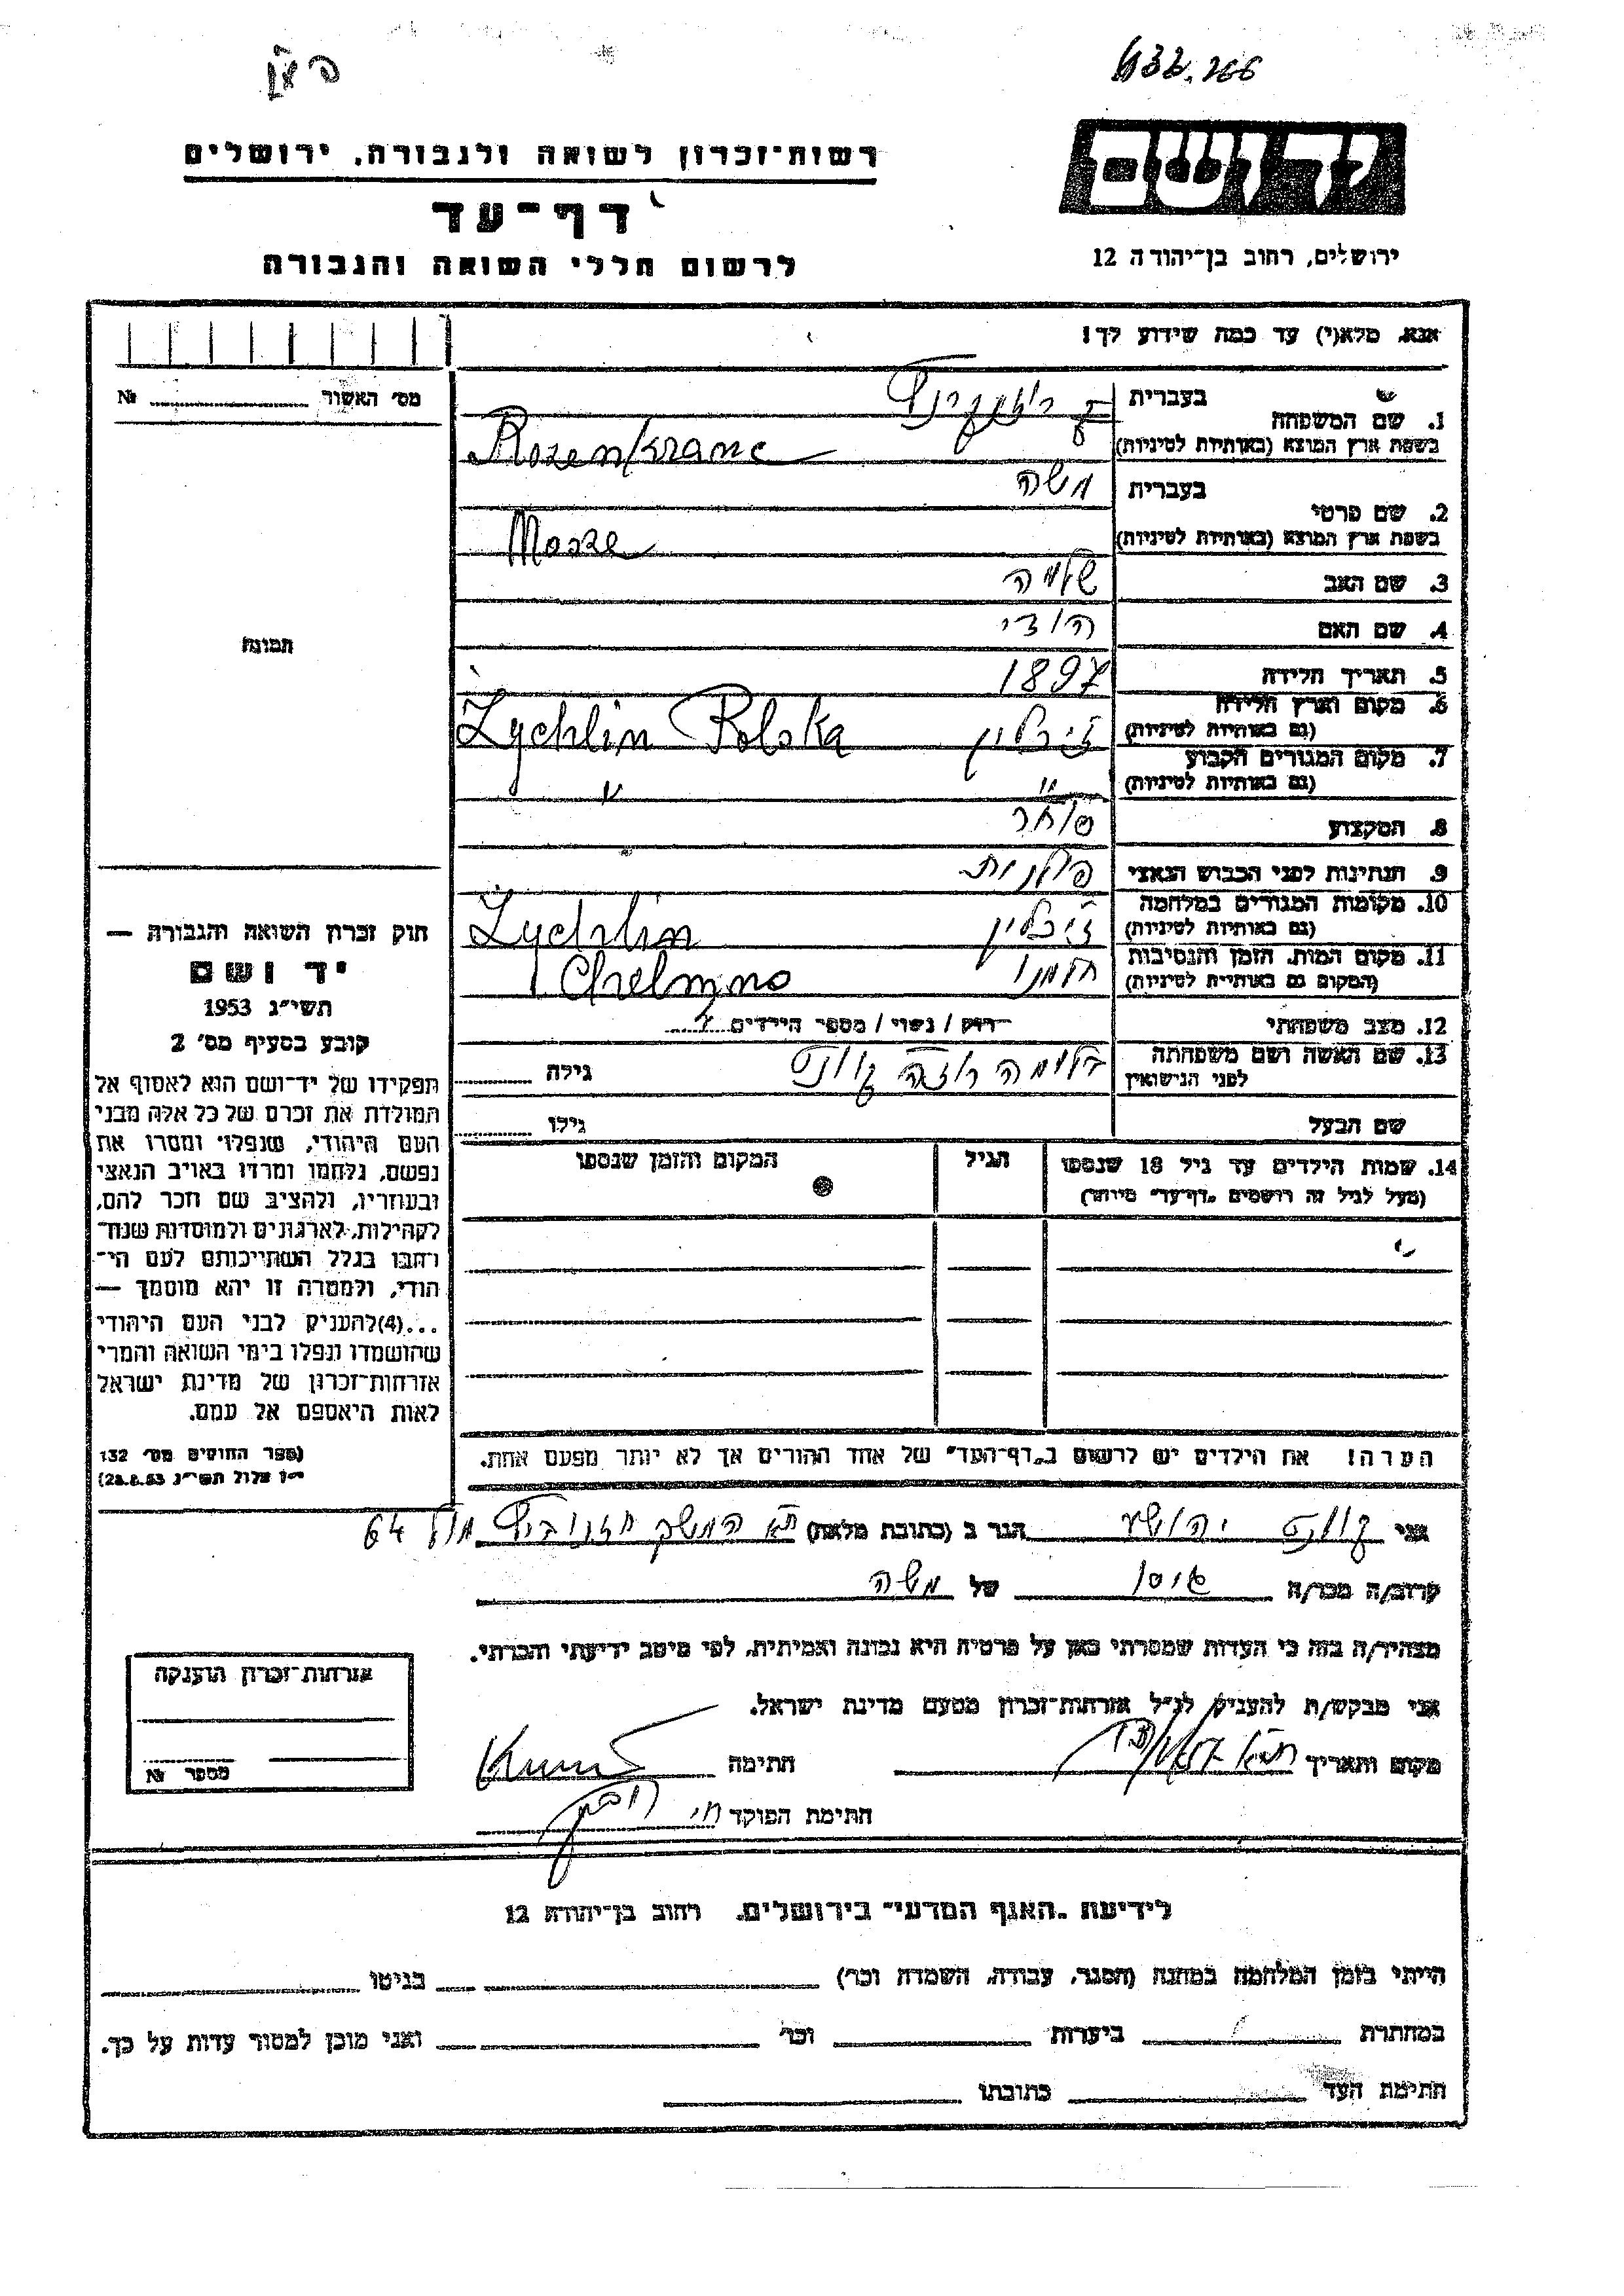 רשות־זכרון לשואה ולגבורה, ירושלים
דף־עד
לרשום חללי השואה והגבורה
ידושם
ירושלים, רחוב בן־יהודה 12
אנא, מלא(י) עד כמה שידוע לך!
מס׳ האשור № 
1. שם המשפחה
בעברית
בשפת ארץ המוצא (באותיות לטיניות) Rozenkranc
2. שם פרטי
בעברית משה
בשפת ארץ המוצא (באותיות לטיניות) Mosze
3. שם האב שלמה
4. שם האם
5. תאריך הלידה 1897
6. מקום וארץ הלידה
(גם באותיות לטיניות) ז'יכלין Żychlin Polska
7. מקום המגורים הקבוע
(גם באותיות לטיניות) " "
8. המקצוע סוחר
9. הנתינות לפני הכבוש הנאצי פולנית
10. מקומות המגורים במלחמה
(גם באותיות לטיניות) ז'יכלין Żychlin
11. מקום המות, הזמן והנסיבות
(המקום גם באותיות לטיניות) חלמנו Chelmno
12. מצב משפחתי רווק / נשוי / מספר הילדים
13. שם האשה ושם משפחתה
לפני הנישואין
גילה
שם הבעל גילו
14. שמות הילדים עד גיל 18 שנספו
(מעל לגיל זה רושמים "דף־עד" מיוחד)
הגיל
המקום והזמן שנספו
הערה! את הילדים יש לרשום ב"דף־העד" של אחד ההורים אך לא יותר מפעם אחת.
תמונה
חוק זכרון השואה והגבורה —
יד ושם
תשי״ג 1953
קובע בסעיף מס׳ 2
תפקידו של יד־ושם הוא לאסוף אל
המולדת את זכרם של כל אלה מבני
העם היהודי, שנפלו ומסרו את
נפשם, נלחמו ומרדו באויב הנאצי
ובעוזריו, ולהציב שם וזכר להם,
לקהילות, לארגונים ולמוסדות שנח־
רבו בגלל השתייכותם לעם הי־
הודי, ולמטרה זו יהא מוסמך —
...(4)להעניק לבני העם היהודי
שהושמדו ונפלו בימי השואה והמרי
אזרחות־זכרון של מדינת ישראל
לאות היאספם אל עמם.
(ספר החוקים מס׳ 132
י״ז אלול תשי״ג 28.8.53)
אני יהושע הגר ב (כתובת מלאה) 64
קרוב/ה מכר/ה גיסו של משה
מצהיר/ה בזה כי העדות שמסרתי כאן על פרטיה היא נכונה ואמיתית, לפי מיטב ידיעתי והכרתי.
אני מבקש/ת להעניק לנ״ל אזרחות־זכרון מטעם מדינת ישראל.
מקום ותאריך חתימה
חתימת הפוקד
אזרחות־זכרון הוענקה
מספר №
לידיעת "האגף המדעי" בירושלים, רחוב בן־יהודה 12
הייתי בזמן המלחמה במחנה (הסגר, עבודה, השמדה וכו׳) בגיטו
במחתרת ביערות וכו׳ ואני מוכן למסור עדות על כך.
חתימת העד כתובתו